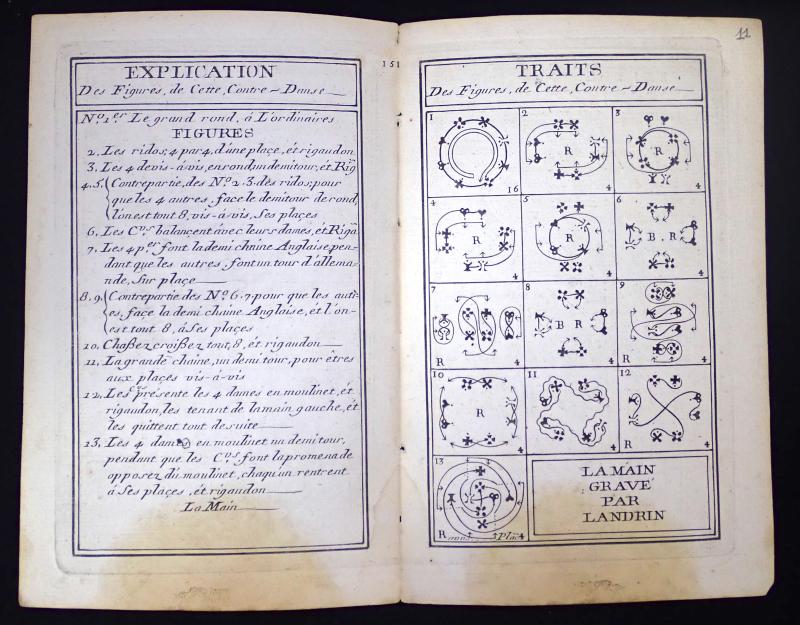 EXPLICATION
Des Figures, de Cette, Contre-Danse
Nos 1er Le grand rond, à L'ordinaires
FIGURES
2. Les ridos, 4 par 4, d'une plaçe, ét rigaudon
3. Les 4 devis-á-vis, en rond un demi tour, ét Rig
4.5. Contrepartie, des No 2.3. dès ridos; pour
que les 4 autres, façe le demi tour de rond,
l'on est tout 8, vis-á-vis, Ses plaçes
6. Les Crs balançent àvec leurs dames, ét Rign
7. Les 4 pers font la demi chaine Anglaise, pen-
dant que les autres, font un tour d'allema-
nde, Sur plaçe
8.9. Contrepartie des No 6.7. pour que les autr-
es, façe la demi chaine Anglaise, ét l'on-
est tout 8, à Ses plaçes
10. Chaßez croißez tout, 8, ét rigaudon
11. La grande chaine, un demi tour, pour êtres
aux plaçés vis-à-vis
12. Les présente les 4 dames en moulinet, ét
rigaudon, les tenant de la main gauche, ét
les quittent tout de suite
13. Les 4 dames en moulinet un demi tour,
pendant que les Crs, font la promenade
opposez du moulinet, chaqu'un rentrent
á Ses plaçes, ét rigaudon
La Main
151
11
TRAITS
Des Figures, de Cette, Contre-Danse
1
16
2
R
4
3
R
4
4
R
4
5
R
4
6
B, R
4
7
R
4
8
B R
4
9
R
4
10
R
4
11
4
12
R
4
13
R
Place
4
LA MAIN
GRAVÉ
PAR
LANDRIN